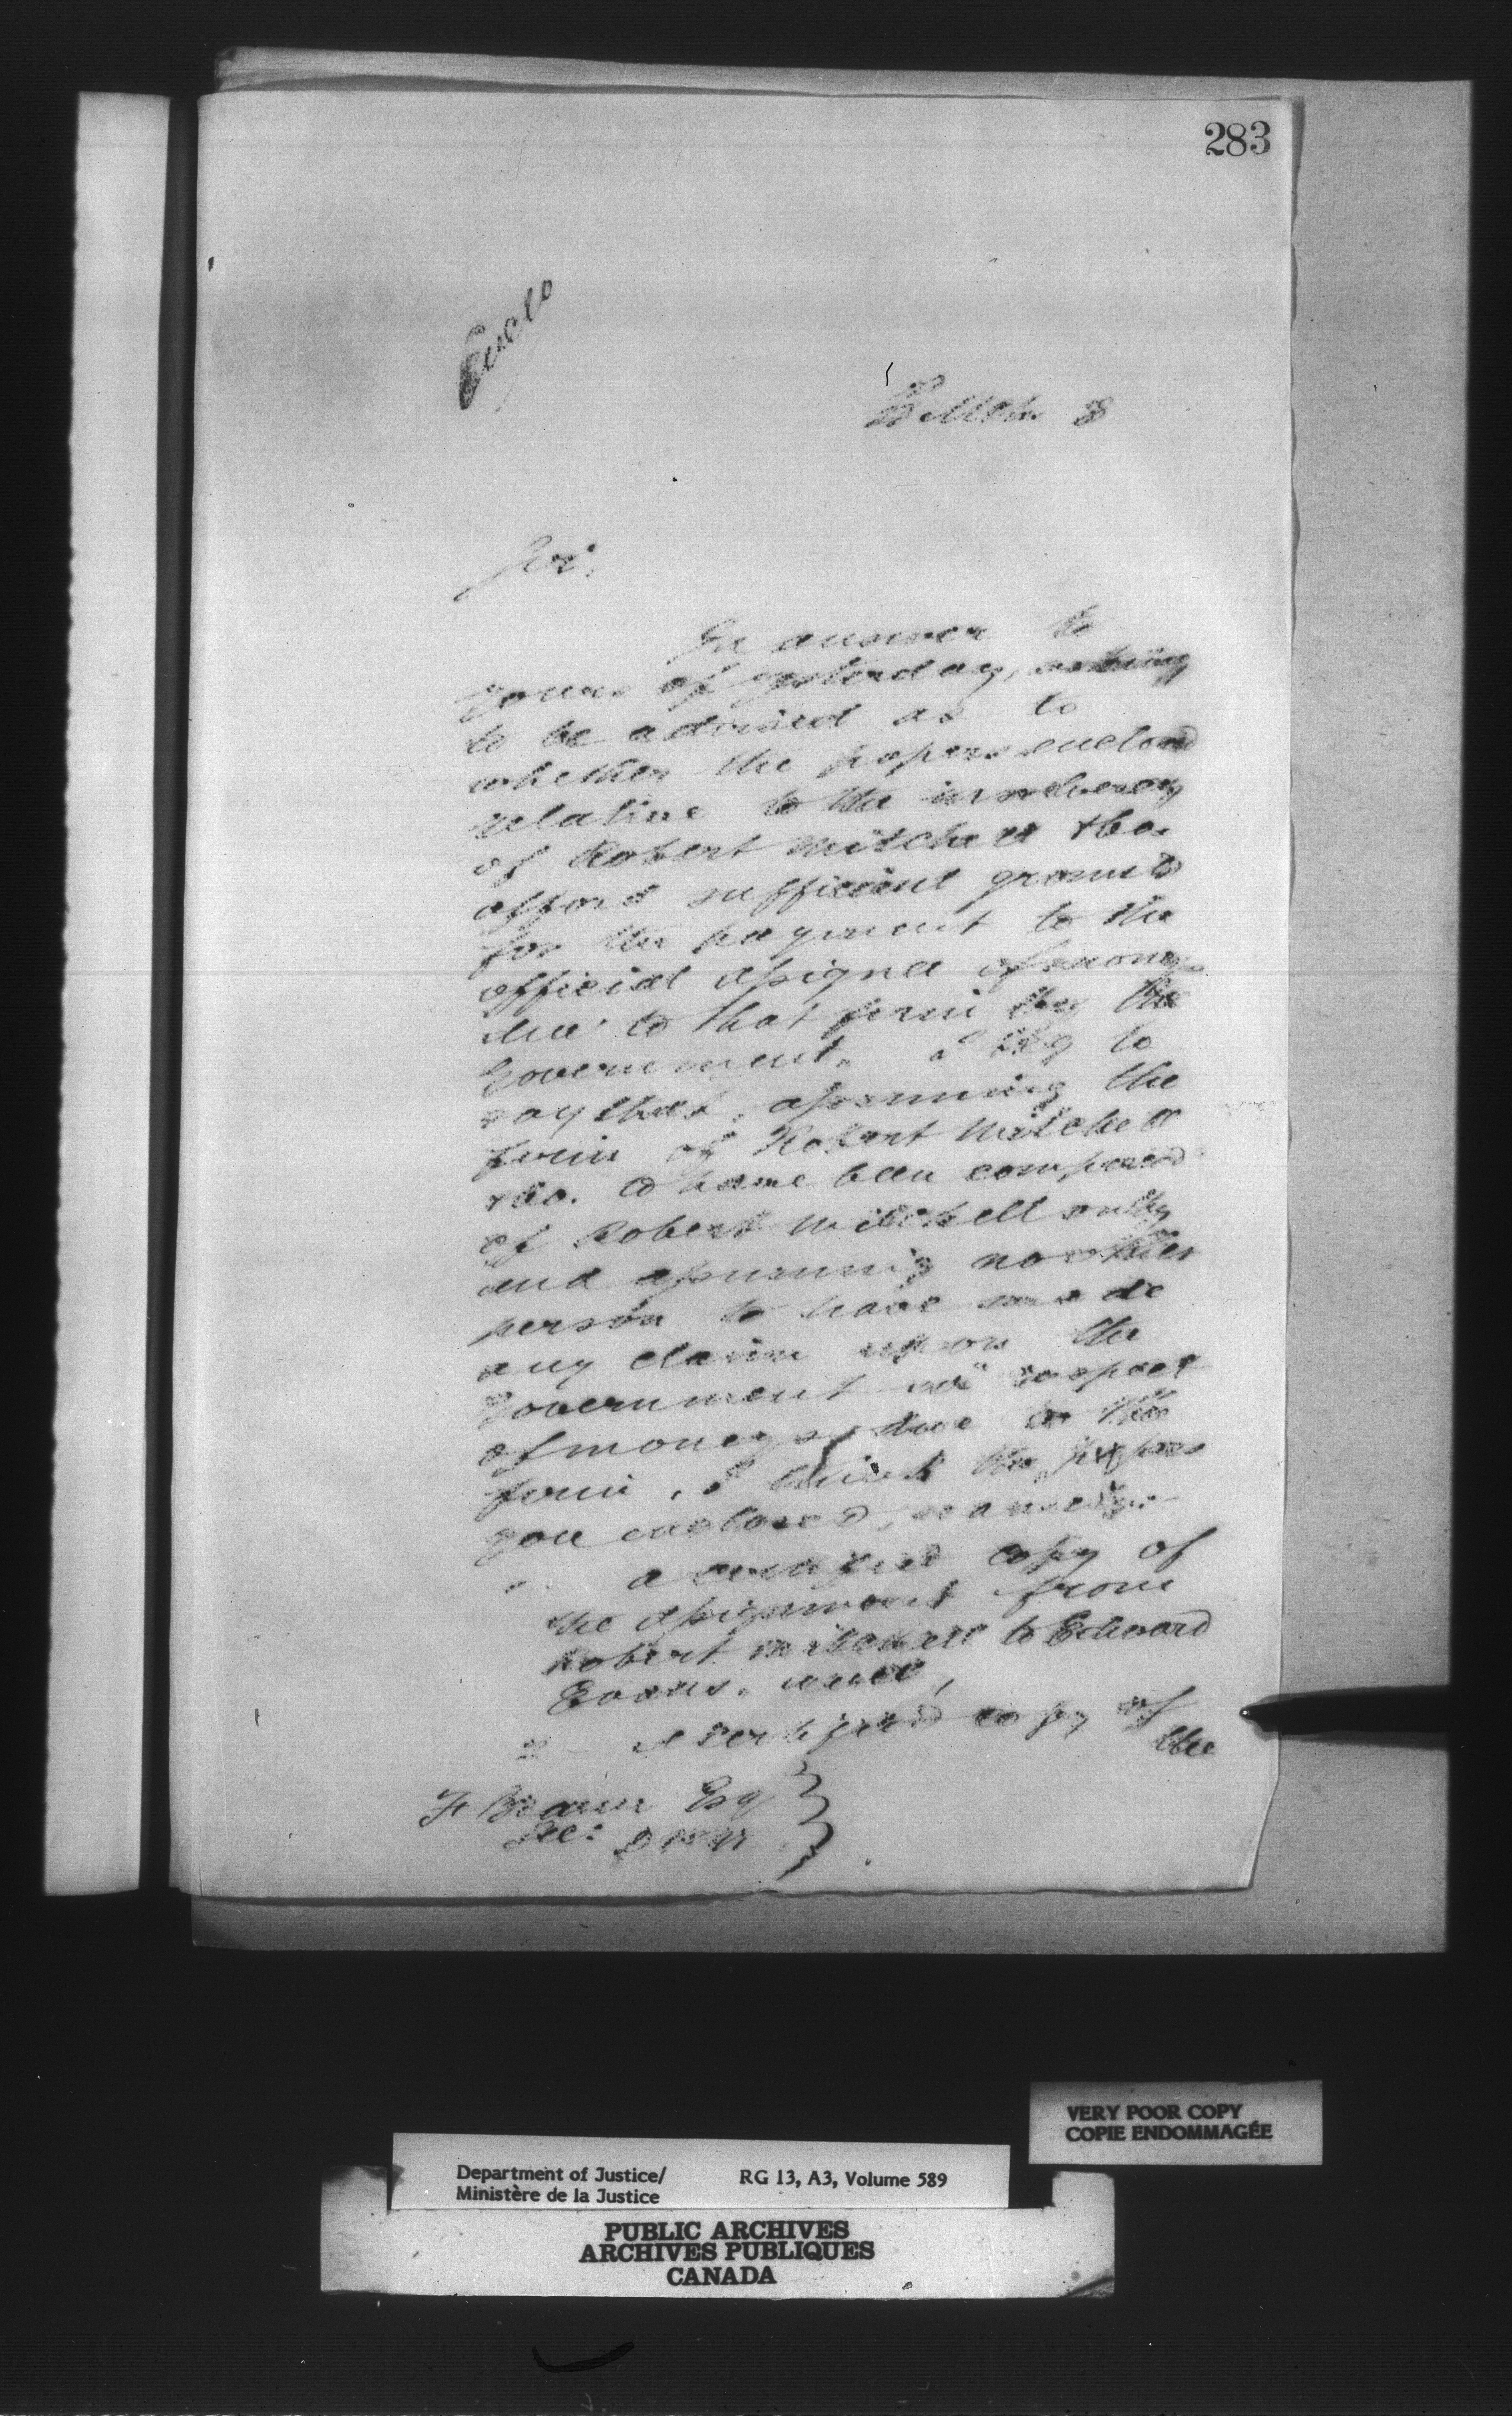 283
Enclo
Sir,
In answer to
yours of yesterday, asking
to be advised as to
whether the papers enclosed
relative to the insolvency
of Robert Mitchell & Co.
afford sufficient grounds
for the payment to the
official assignee of moneys
due to that firm by the
Government, I beg to
say that, assuming the
firm of Robert Mitchell
& Co. to have been composed
of Robert Mitchell only
and assuming no other
person to have made
any claim upon the
Government in respect
of moneys due to the
firm, I think the papers
you enclosed, namely:-
a certified copy of
the assignment from
Robert Mitchell to Edward
Evans, and,
2 a certified copy of
the
F Braun Esq
Sec:
VERY POOR COPY
COPIE ENDOMMAGÉE
Department of Justice/ RG 13, A3, Volume 589
Ministère de la Justice
PUBLIC ARCHIVES
ARCHIVES PUBLIQUES
CANADA